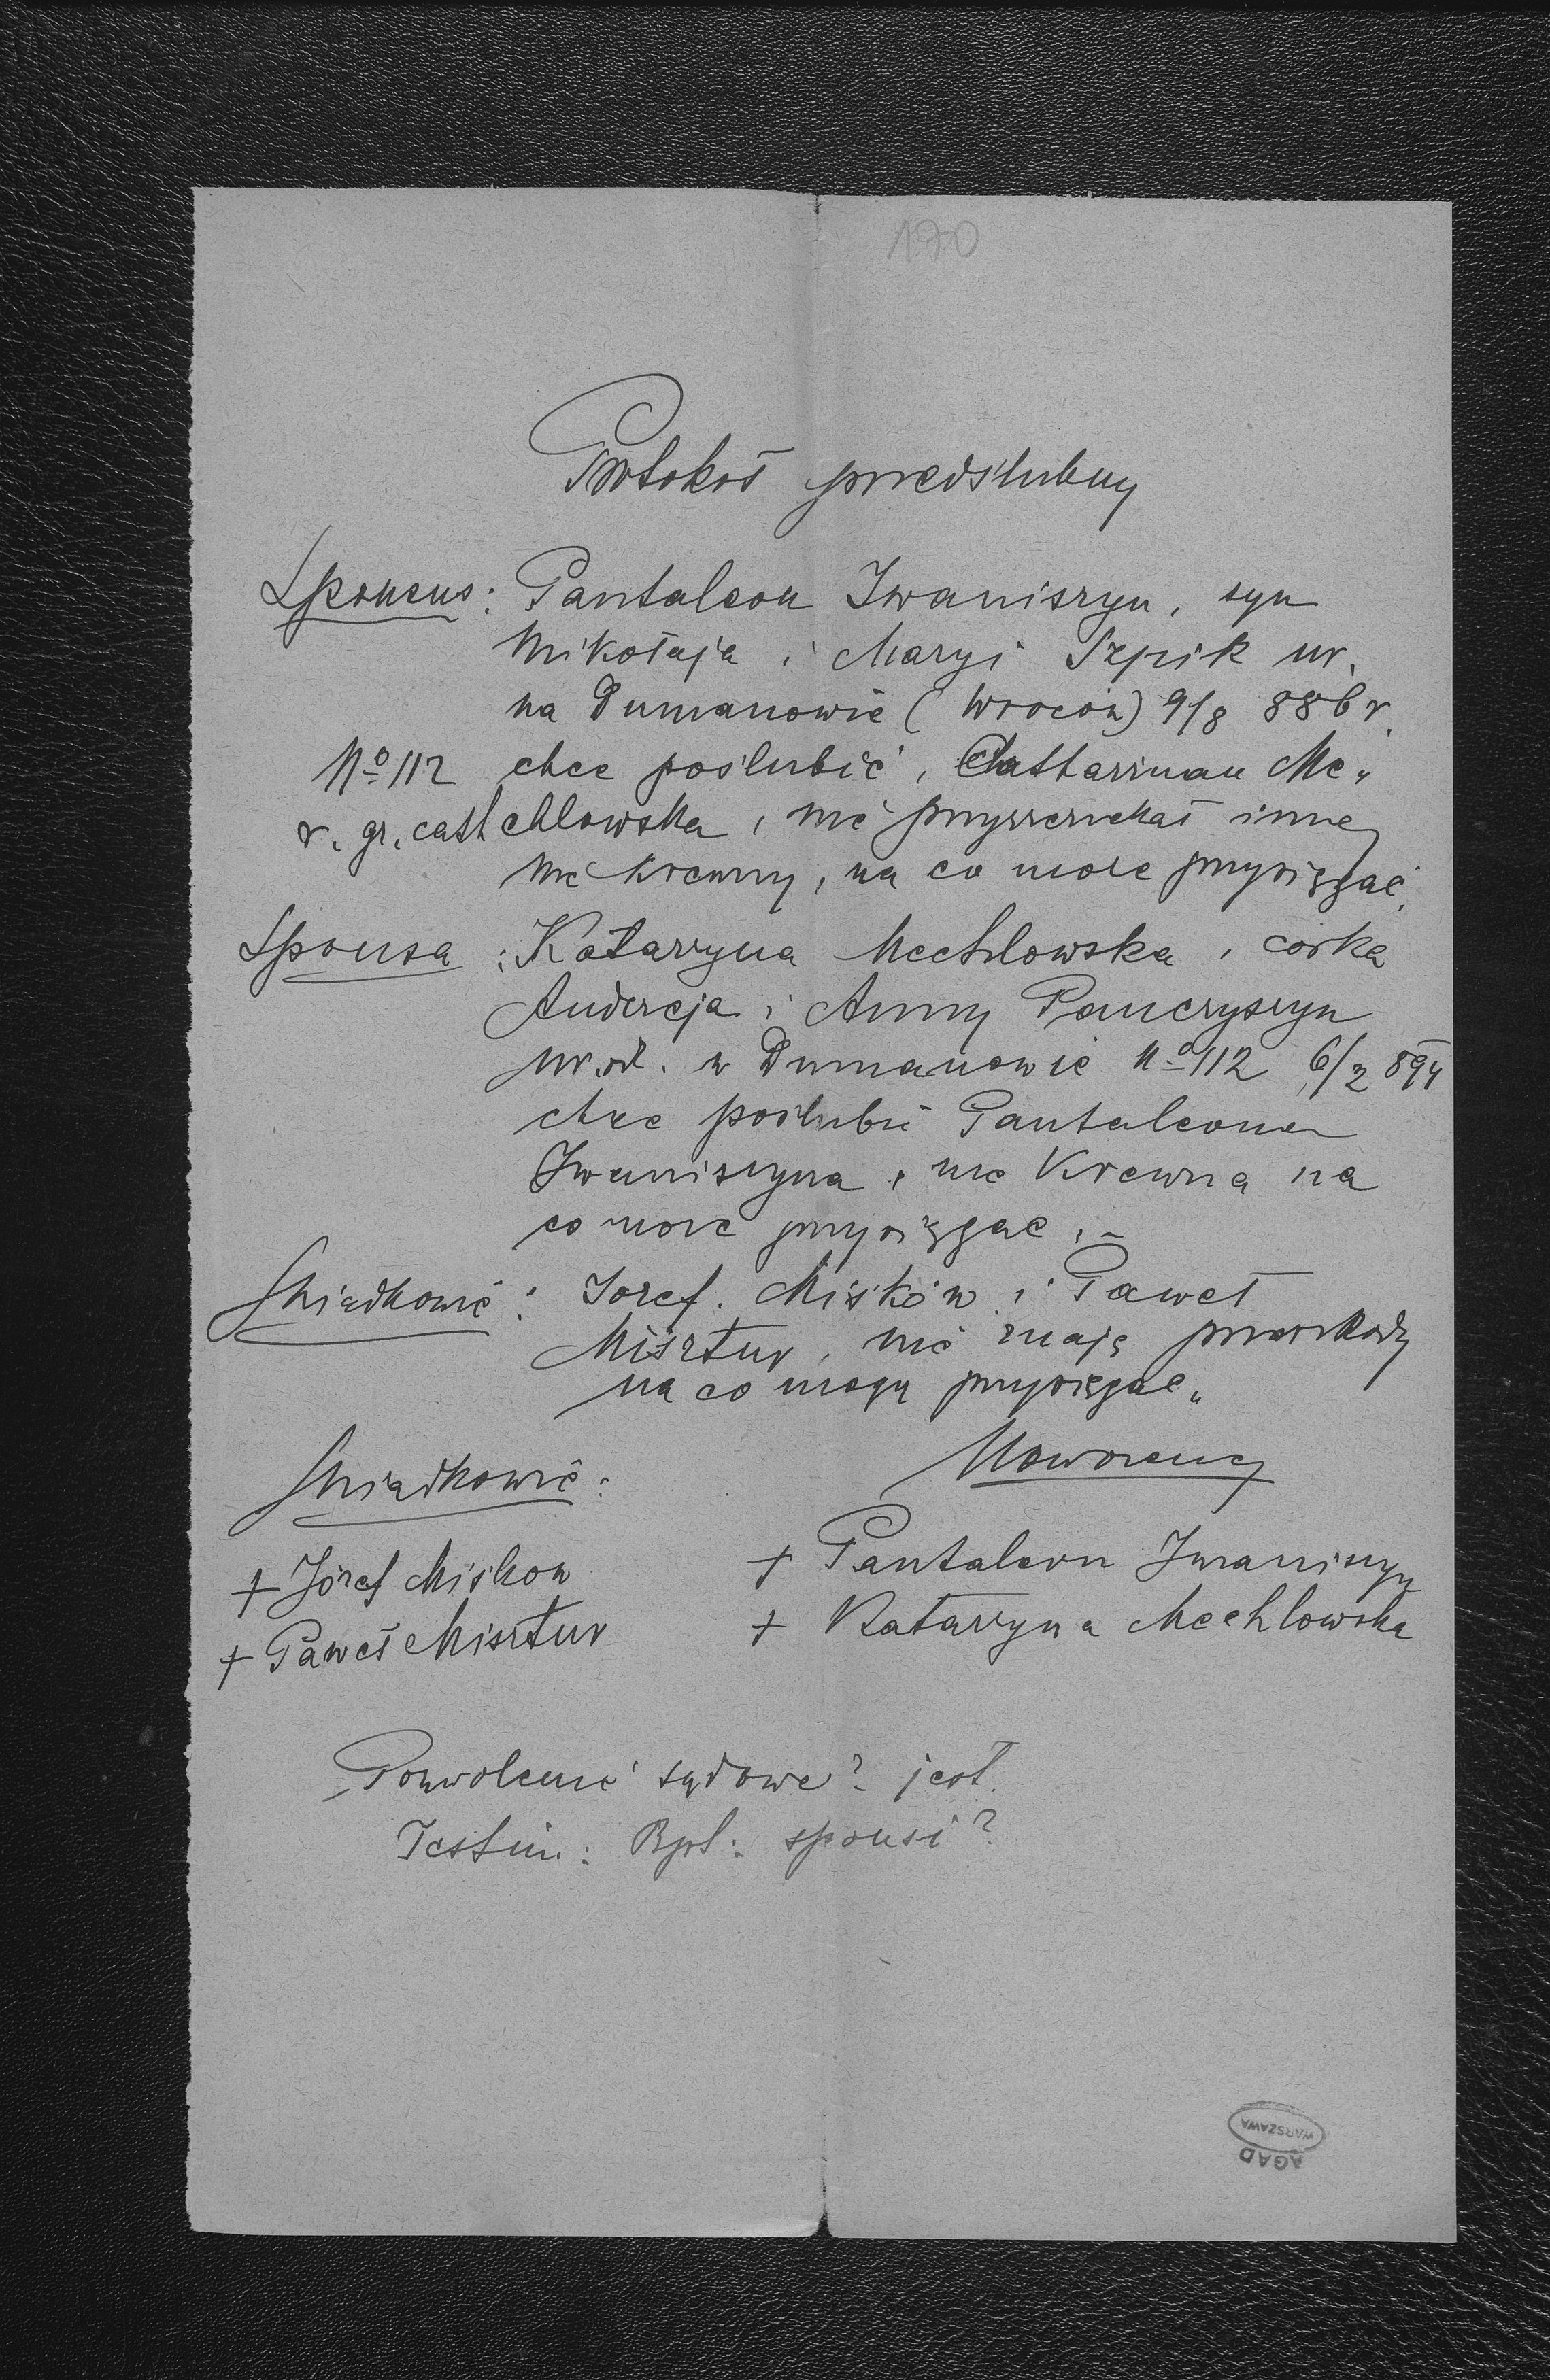 170
Protokoł przedślubny
Sponsus: Pantaleon Iwaniszyn, syn
Mikołaja i Maryi Szpik ur.
na Dumanowie (Wroców) 9/8 886 r.
No 112 chce poślubić, Catharinam Me„
r. gr. cath chlowska, nie przyrzeckał innej
nie krewny, na co może przysięgać.
Sponsa: Katarzyna Mechlowska, córka
Andreja i Anny Panczyszyn
ur. w Dumanowie No 112 6/2 894
chce poślubić Pantaleona
Iwaniszyna, nie krewna na
co może przysięgać.–
Świadkowie: Józef Miśków i Paweł
Misztur, nie znają przeszkody
na co mogą przysięgać„
Świadkowie: Nowożeńcy
+ Józef Miśkow + Pantaleon Iwaniszyn
+ Paweł Misztur + Katarzyna Mechlowska
Pozwolenie sądowe? jest.
Testim: Bpt: sponsi?
AGAD
WARSZAWA